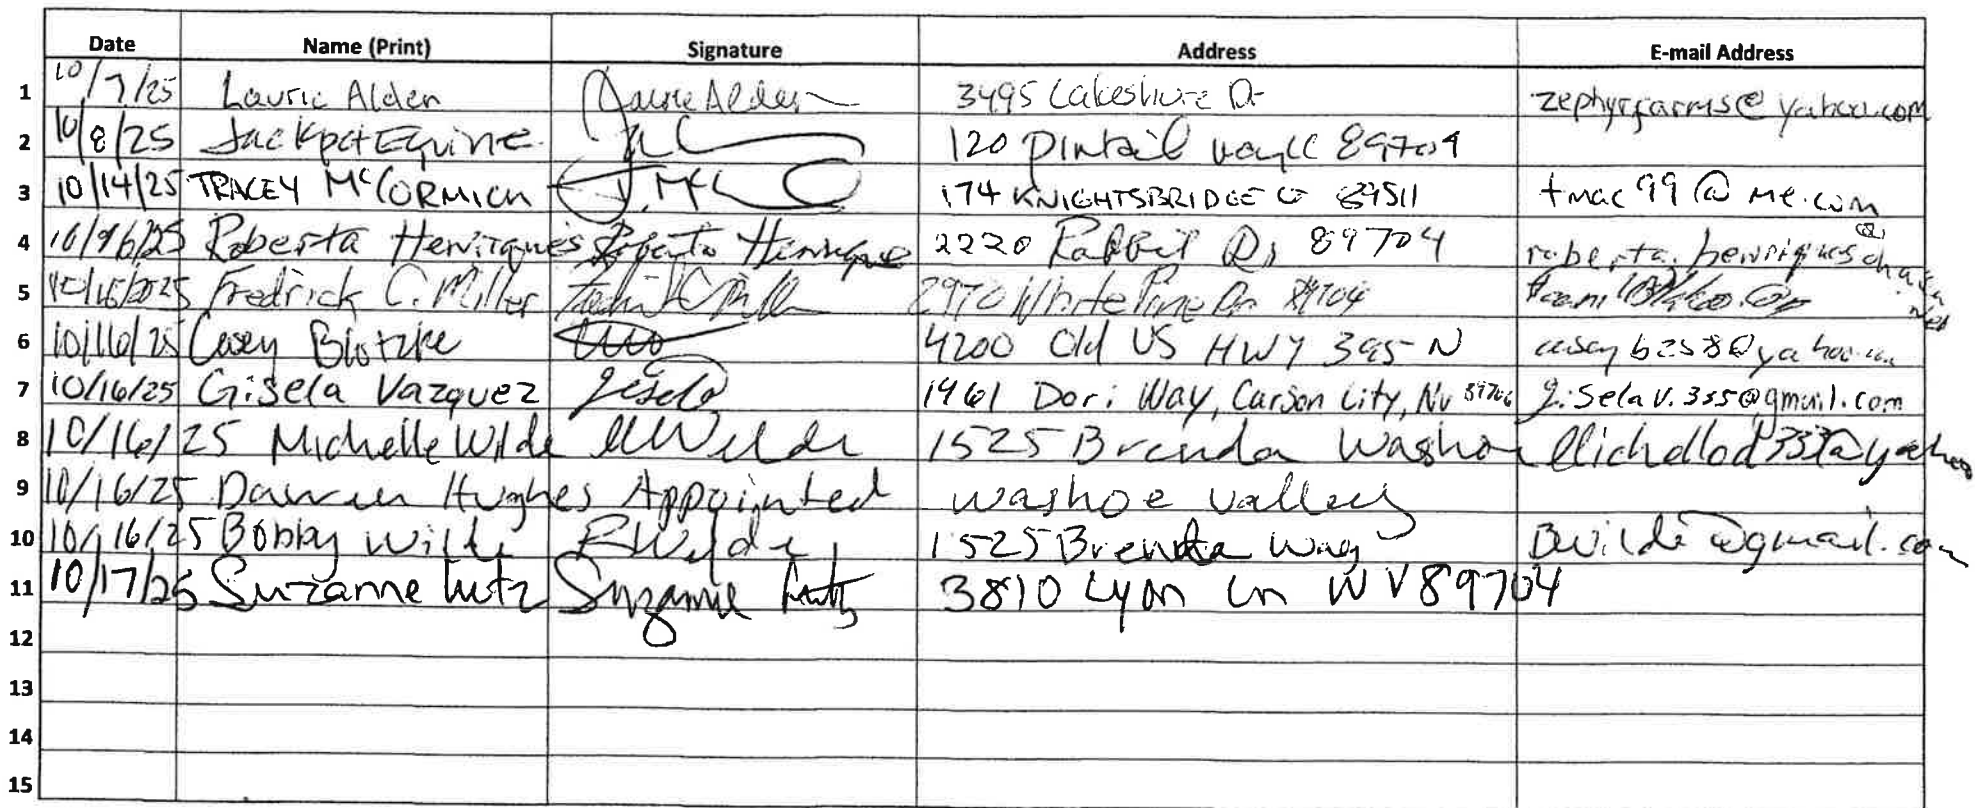 Date Name (Print) Signature Address E-mail Address
1 10/7/25 Laurie Alden Laurie Alden 3495 Lakeshore Dr zephyrfarms@yahoo.com
2 10/8/25 Jackpot Equine 120 Pintail 89704
3 10/14/25 TRACEY McCORMICK T. McC 174 KNIGHTSBRIDGE CT 89511 tmac99@me.com
4 Roberta Henriques Roberta Henriques 2220 Rabbit Dr 89704 roberta.henriques@
5 Fredrick C. Miller 2970 White Pine Dr 89704
6 10/16/25 Casey Blotzke 4200 Old US HWY 395 N casey6258@yahoo.com
7 10/16/25 Gisela Vazquez Gisela 1461 Dori Way, Carson City, NV 89706 giselav.355@gmail.com
8 10/16/25 Michelle Wilde MWilde 1525 Brenda Washoe
9 10/16/25 Hughes Appointed Washoe Valley
10 10/16/25 Bobby Wilde BWilde 1525 Brenda Way BWilde@gmail.com
11 10/17/25 Suzanne Lutz Suzanne Lutz 3810 Lyon Ln WV 89704
12
13
14
15